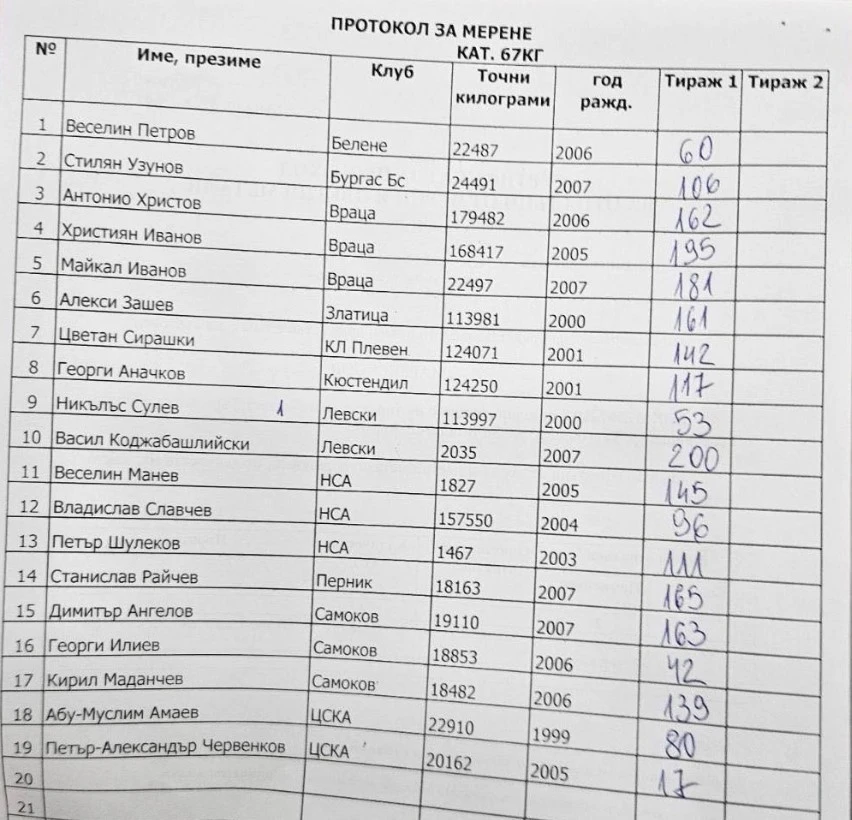 ПРОТОКОЛ ЗА МЕРЕНЕ
КАТ. 67КГ
№ Име, презиме Клуб Точни килограми год ражд. Тираж 1 Тираж 2
1 Веселин Петров Белене 22487 2006 60
2 Стилян Узунов Бургас Бс 24491 2007 106
3 Антонио Христов Враца 179482 2006 162
4 Християн Иванов Враца 168417 2005 195
5 Майкал Иванов Враца 22497 2007 181
6 Алекси Зашев Златица 113981 2000 161
7 Цветан Сирашки КЛ Плевен 124071 2001 142
8 Георги Аначков Кюстендил 124250 2001 117
9 Никълъс Сулев 1 Левски 113997 2000 53
10 Васил Коджабашлийски Левски 2035 2007 200
11 Веселин Манев НСА 1827 2005 145
12 Владислав Славчев НСА 157550 2004 96
13 Петър Шулеков НСА 1467 2003 111
14 Станислав Райчев Перник 18163 2007 165
15 Димитър Ангелов Самоков 19110 2007 163
16 Георги Илиев Самоков 18853 2006 42
17 Кирил Маданчев Самоков 18482 2006 139
18 Абу-Муслим Амаев ЦСКА 22910 1999 80
19 Петър-Александър Червенков ЦСКА 20162 2005 17
20
21